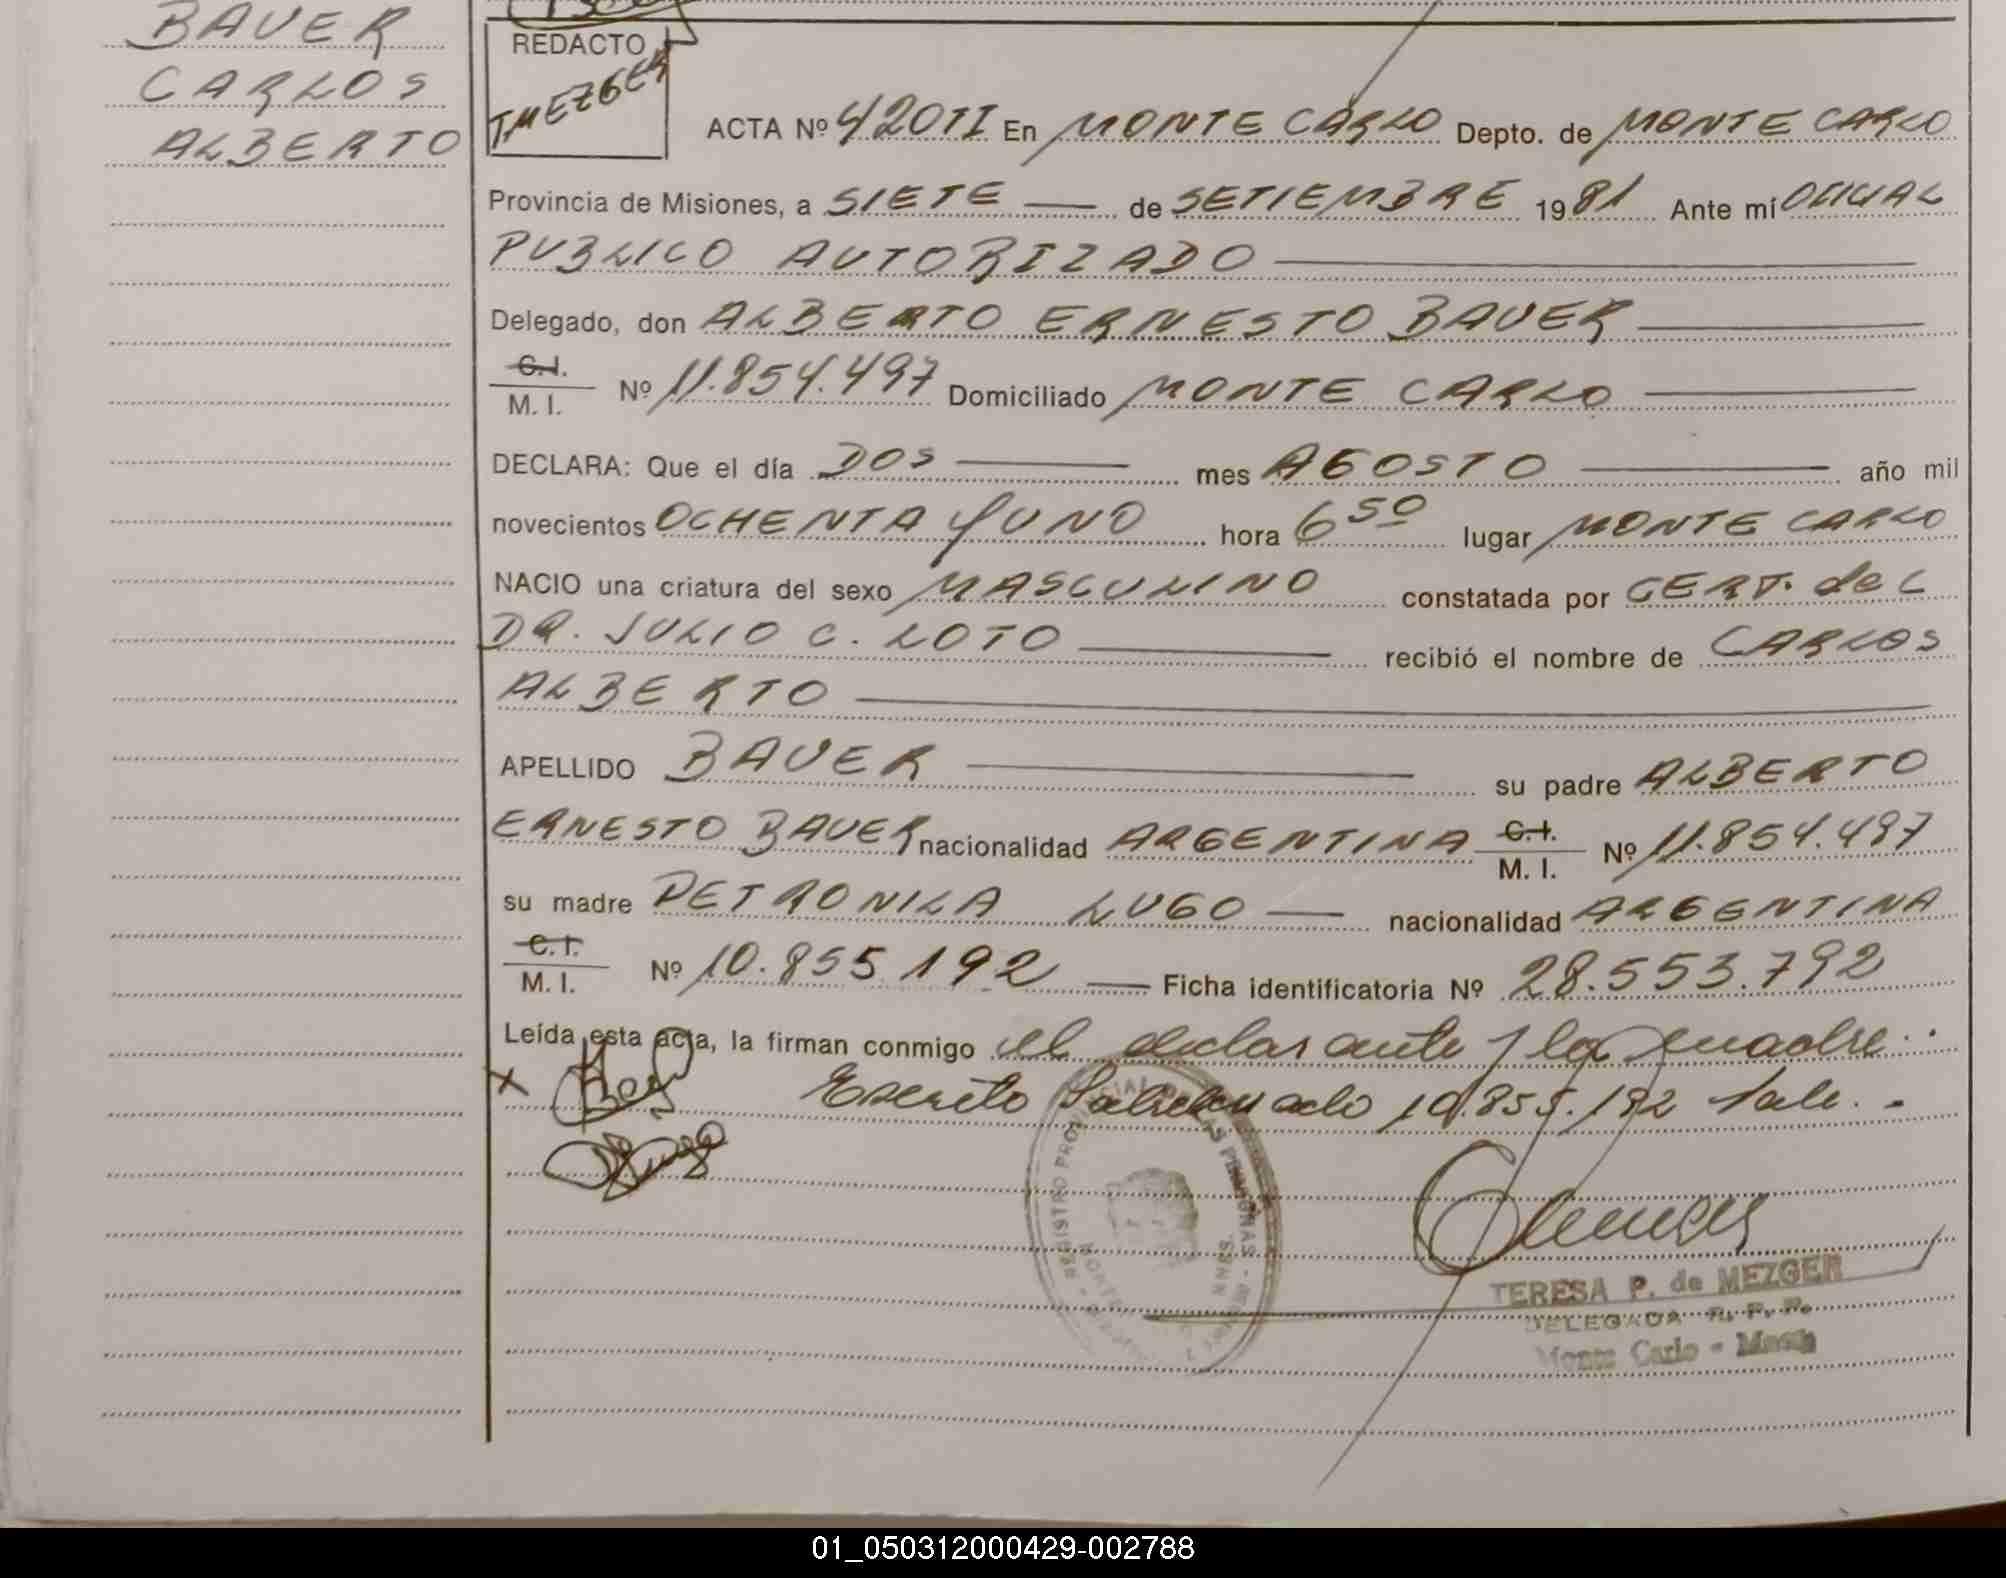 BAUER
CARLOS
ALBERTO
REDACTO
TMEZGER
ACTA Nº 420 II En MONTE CARLO Depto. de MONTE CARLO
Provincia de Misiones, a SIETE — de SETIEMBRE 1981 Ante mí OFICIAL
PUBLICO AUTORIZADO
Delegado, don ALBERTO ERNESTO BAUER
C.I.
M. I. Nº 11.854.497 Domiciliado MONTE CARLO
DECLARA: Que el día DOS mes AGOSTO año mil
novecientos OCHENTA Y UNO hora 6 50 lugar MONTE CARLO
NACIO una criatura del sexo MASCULINO constatada por CERT. del
DR. JULIO C. LOTO recibió el nombre de CARLOS
ALBERTO
APELLIDO BAUER su padre ALBERTO
ERNESTO BAUER nacionalidad ARGENTINA C.I. M. I. Nº 11.854.497
su madre PETRONILA LUGO — nacionalidad ARGENTINA
C.I.
M. I. Nº 10.855.192 — Ficha identificatoria Nº 28.553.792
Leída esta acta, la firman conmigo el declarante y la madre..
x Escrito Sobrerraspado 10.855.192 Vale. -
REGISTRO PROVINCIAL DE LAS PERSONAS
TERESA P. de MEZGER
DELEGADA R. P. P.
Monte Carlo - Mnes
01_050312000429-002788